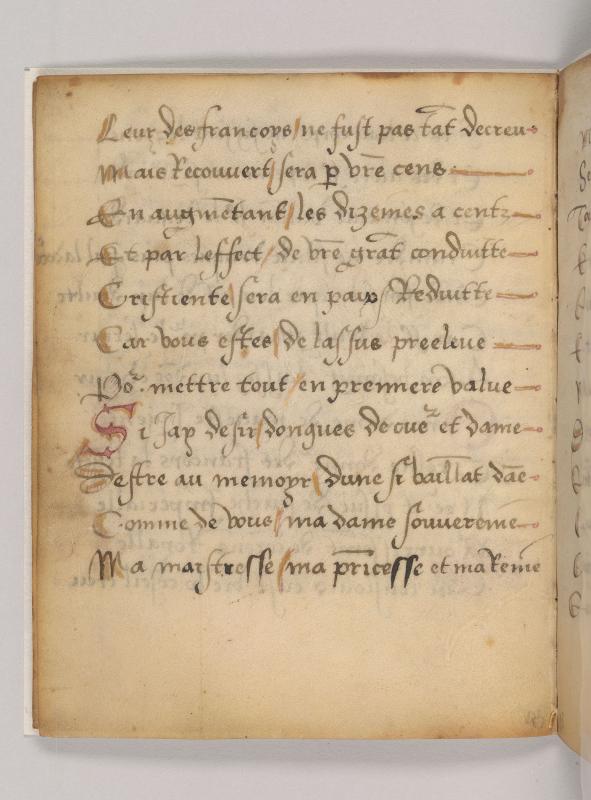 Leur des francoys / ne fust pas tāt decreu
Mais Recouvert / sera p̲ vr̄e cens
En augmētant / les dizemes a centz
Et par leffect / de vr̄e grāt conduitte
Cristiente / sera en paix / Reduitte
Car vous estes / de lassus preeleue
Por mettre tout / en premiere value
Si Jay desir / donques de cuer et dame
Destre au memoyr / dune si vaillāt dāe
Comme de vous / ma dame souvereine
Ma maistresse / ma prīcesse et ma Reine